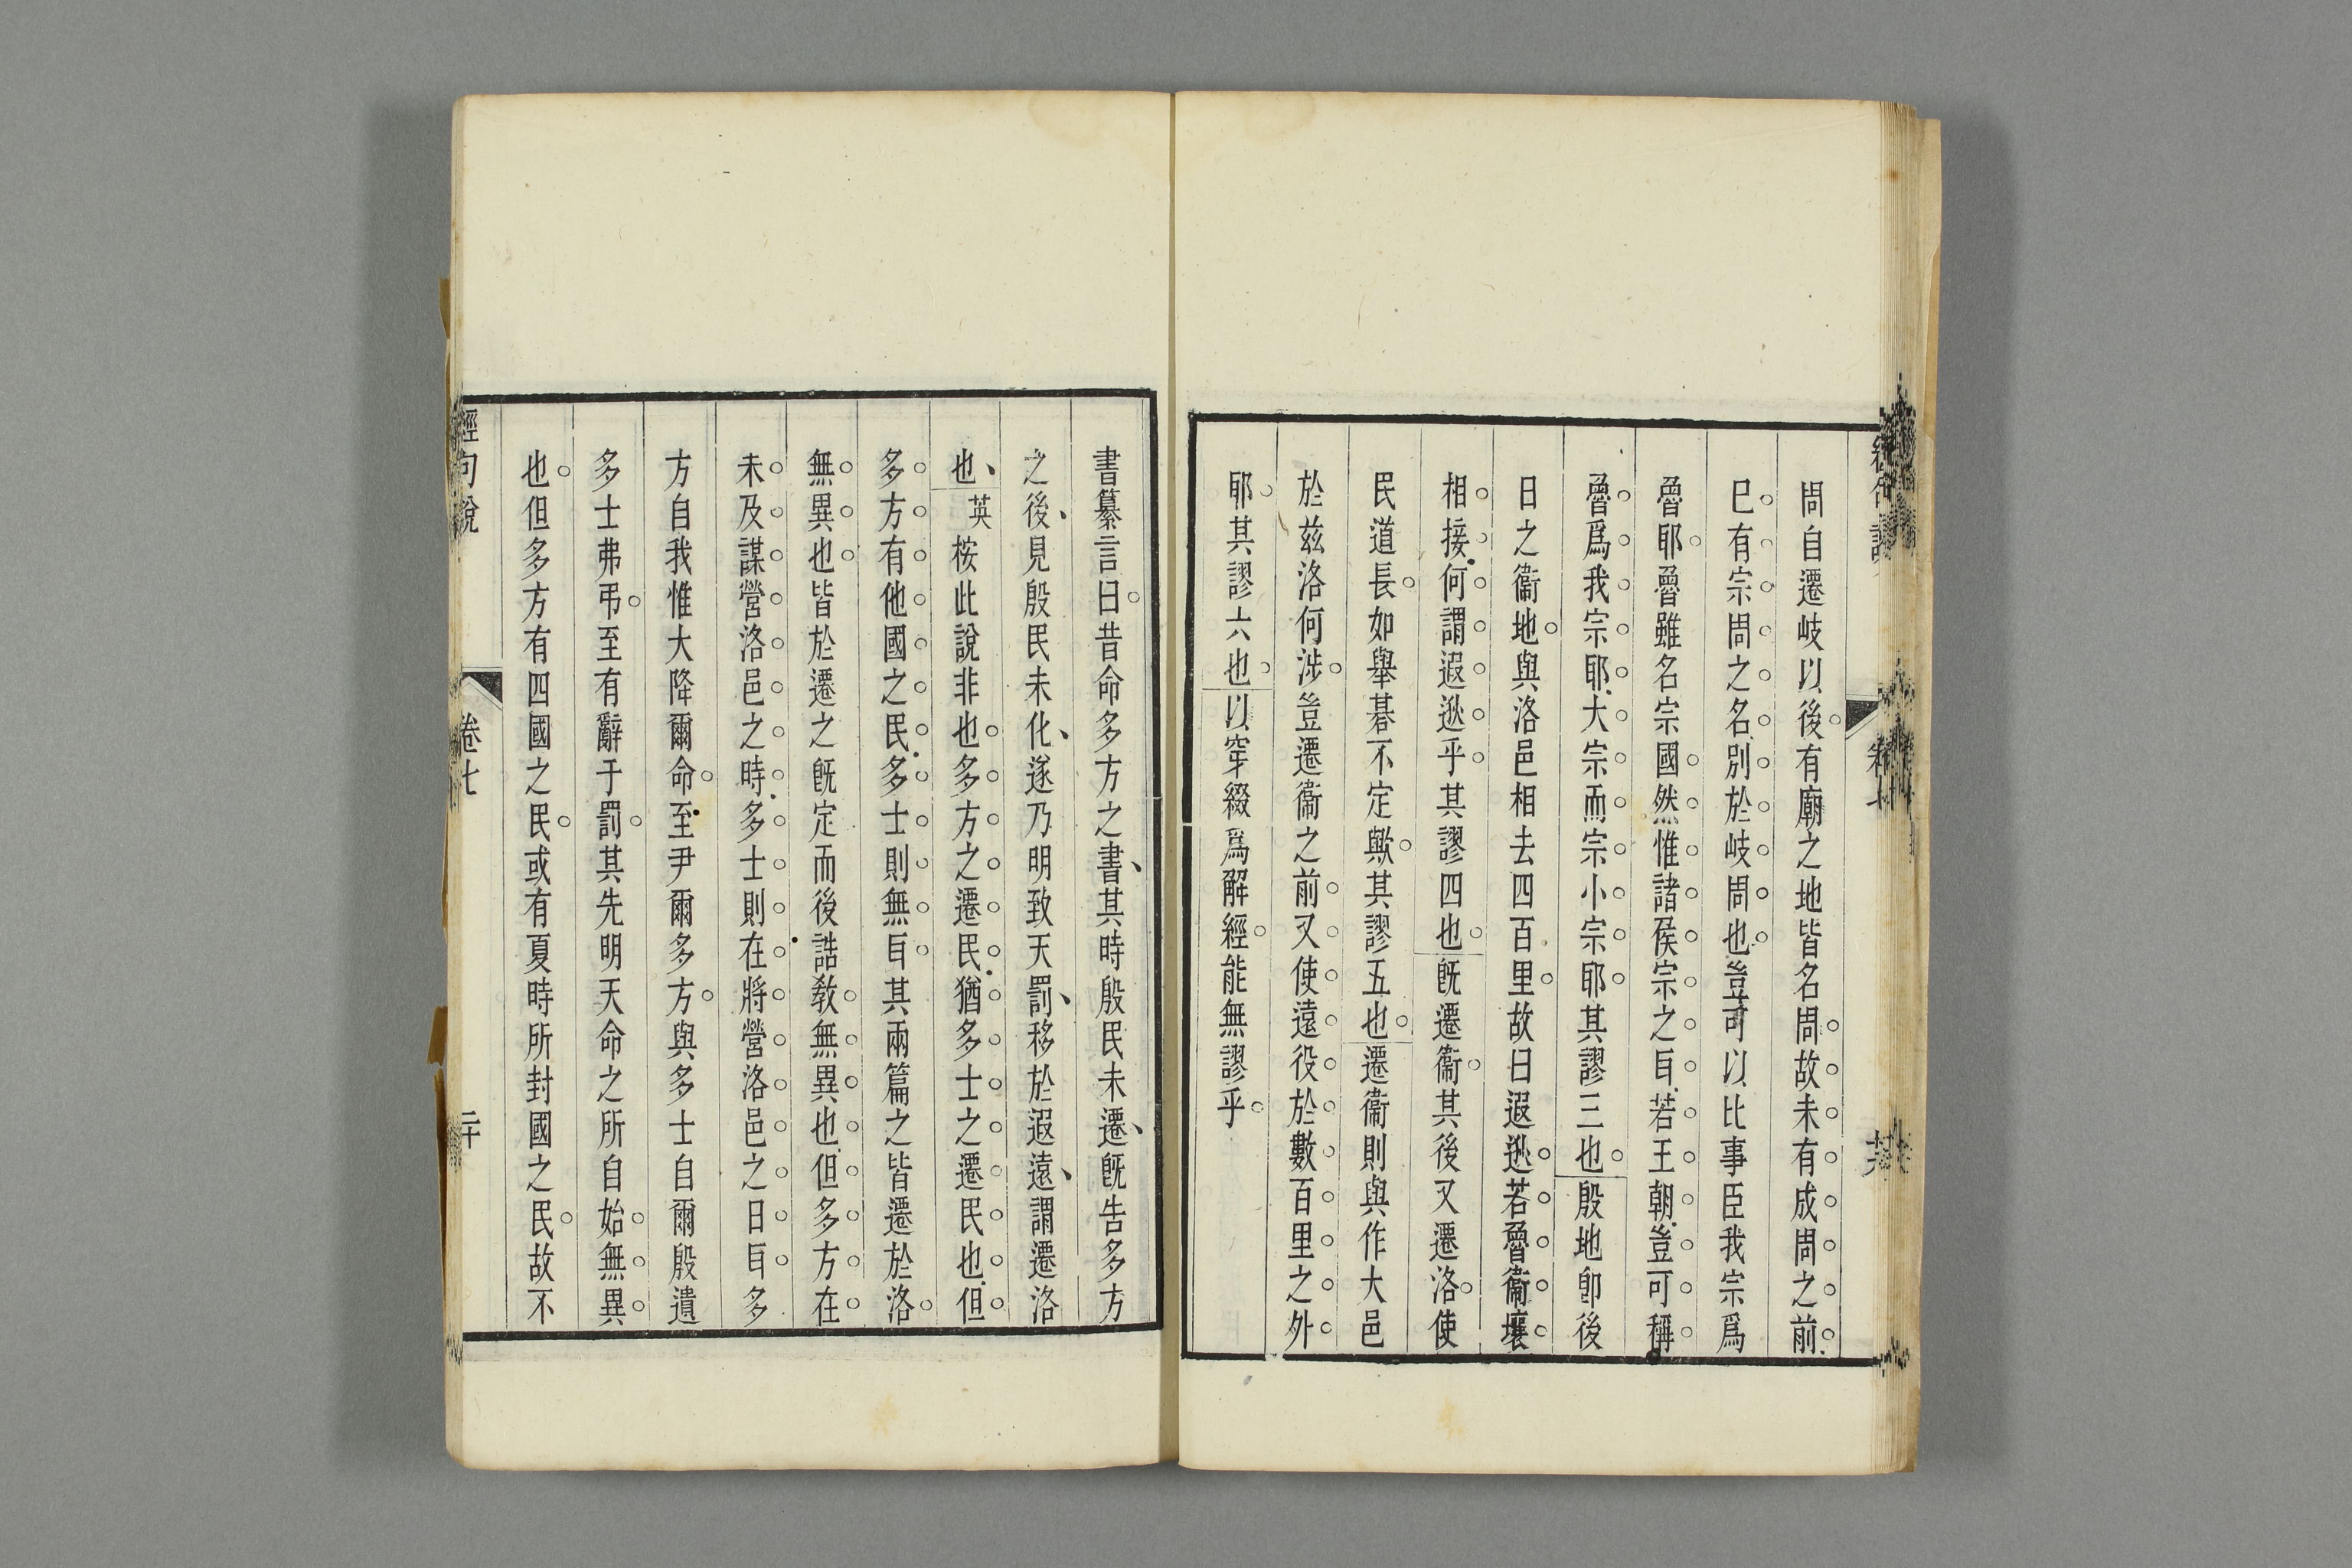 周自遷岐以後有廟之地皆名周故未有成周之前
已有宗周之名別於岐周也豈可以比事臣我宗爲
魯耶魯雖名宗國然惟諸侯宗之㠯若王朝豈可稱
魯爲我宗耶大宗而宗小宗耶其謬三也殷地卽後
日之衞地與洛邑相去四百里故曰遐逖若魯衞壤
相接何謂遐逖乎其謬四也旣遷衞其後又遷洛使
民道長如舉碁不定歟其謬五也遷衞則與作大邑
於茲洛何涉豈遷衞之前又使遠役於數百里之外
耶其謬六也以穿綴爲解經能無謬乎
書纂言曰昔命多方之書其時殷民未遷旣告多方
之後見殷民未化遂乃明致天罰移於遐遠謂遷洛
也英桉此說非也多方之遷民猶多士之遷民也但
多方有他國之民多士則無㠯其兩篇之皆遷於洛
無異也皆於遷之旣定而後誥敎無異也但多方在
未及謀營洛邑之時多士則在將營洛邑之日㠯多
方自我惟大降爾命至尹爾多方與多士自爾殷遺
多士弗弔至有辭于罰其先明天命之所自始無異
也但多方有四國之民或有夏時所封國之民故不
經句說
卷七
二十